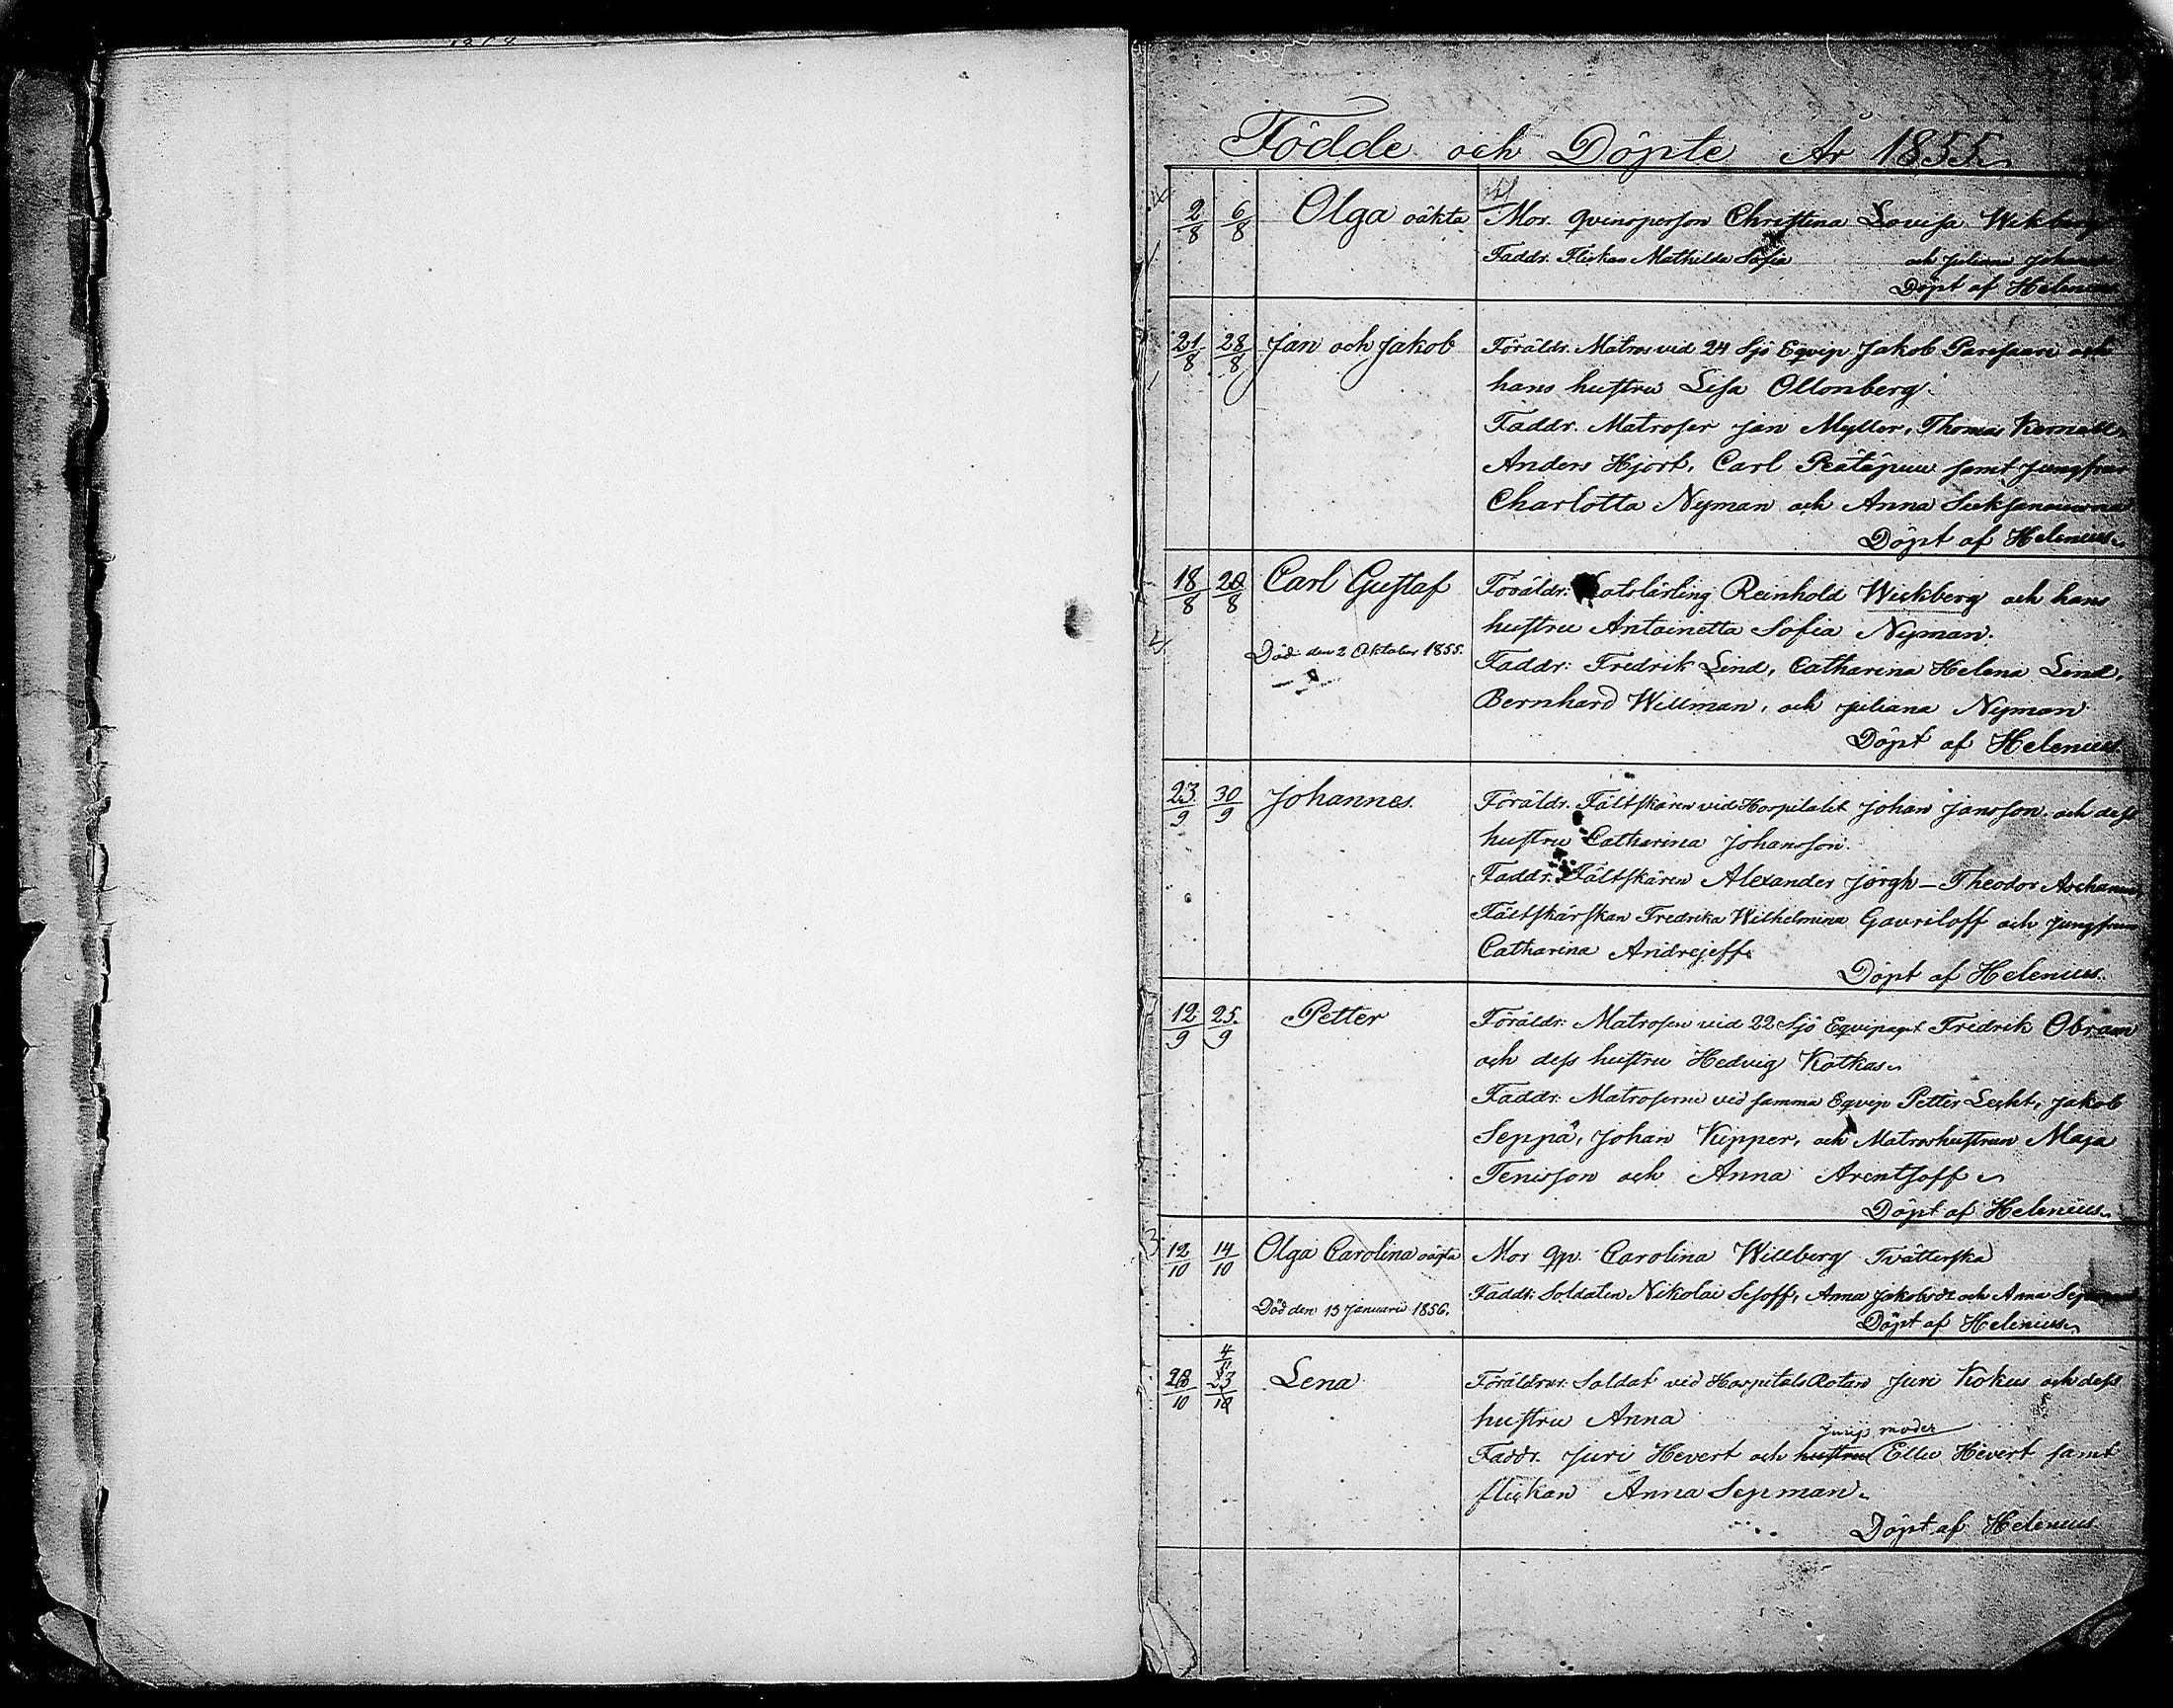 Födde och Döpte År 1855
2/8 6/8 Olga oäkta Mor. qvinsperson Christina Lovisa Wikberg
Faddr. Flickan Mathilda Sofia och Juliana
Döpt af Helenius
21/8 28/8 Jan och Jakob Föräldr. Matros vid 24 Sjö Eqvip Jakob Parisaari och
hans hustru Lisa Ollonberg.
Faddr. Matroser Jan Myller, Thomas
Anders Hjort, Carl samt Jungfrur
Charlotta Nyman och Anna
Döpt af Helenius
18/8 20/8 Carl Gustaf Föräldr: Reinhold Wickberg och hans
hustru Antoinetta Sofia Nyman.
Död den 2 Oktober 1855.
Faddr: Fredrik Lind, Catharina Helena Lind,
Bernhard Willman, och Juliana Nyman
Döpt af Helenius
23/9 30/9 Johannes. Föräldr. Fältskären vid Hospitalet Johan Jansson och dess
hustru Catharina Johansson.
Faddr. Fältskären Alexander Jörgh – Theodor
Fältskärskan Fredrika Wilhelmina Gavriloff och Jungfrun
Catharina Andrejeff
Döpt af Helenius.
12/9 25/9 Petter Föräldr: Matrosen vid 22 Sjö Eqvipaget Fredrik Obram
och dess hustru Hedvig Kotkas
Faddr: Matroserne vid samma Eqvip Petter Lecht, Jakob
Seppä, Johan Kipper, och Matroshustrun Maja
Tenisson och Anna Arentsoff
Döpt af Helenius
12/10 14/10 Olga Carolina oägta Mor qp. Carolina Willberg Tvätterska
Död den 13 Januari 1856.
Faddr: Soldaten Nikolai Sesoff, Anna Jakobsdr och Anna
Döpt af Helenius
4/11
28/10 23/10 Lena Föräldrar: Soldat vid Hospitals Rotan Juri Kokus och dess
hustru Anna
moder
Faddr. Juri Hevert och hustru Ellu Hevert samt
flickan Anna Sepman
Döpt af Helenius